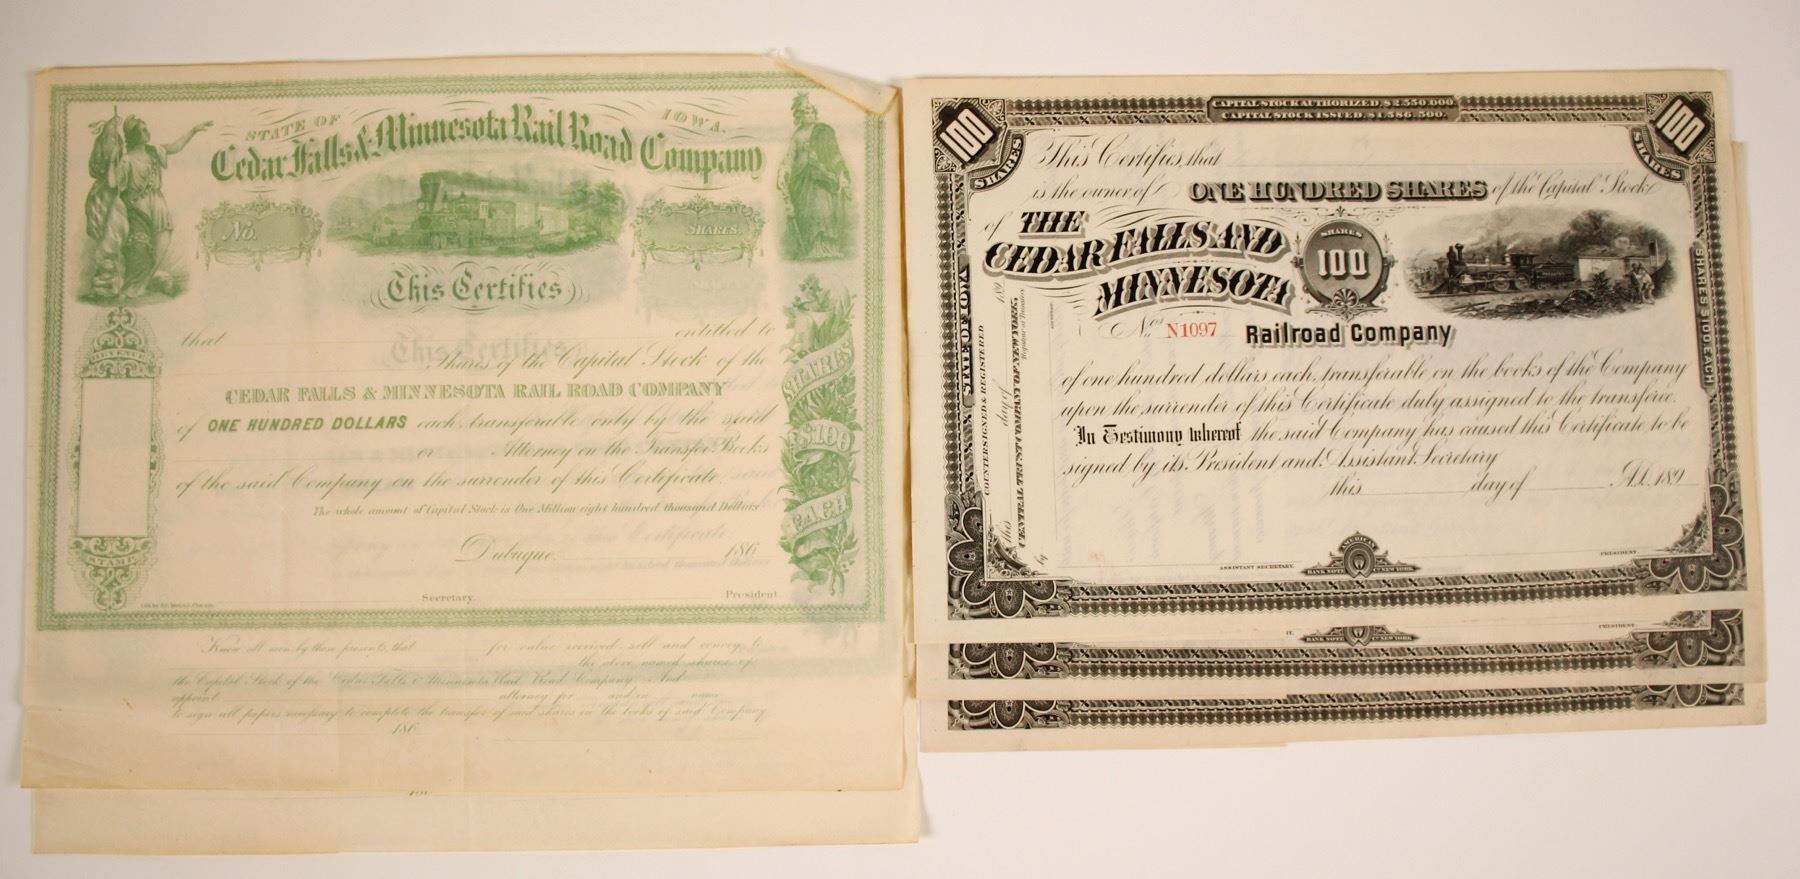 STATE OF IOWA.
Cedar Falls & Minnesota Rail Road Company
No.
SHARES.
This Certifies
that entitled to
Shares of the Capital Stock of the
CEDAR FALLS & MINNESOTA RAIL ROAD COMPANY
of ONE HUNDRED DOLLARS each, transferable only by the said
or Attorney on the Transfer Books
of the said Company on the surrender of this Certificate.
The whole amount of Capital Stock is One Million eight hundred thousand Dollars
Dubuque, 186
Secretary.
President
REVENUE
STAMP
SHARES
$100
EACH
Know all men by these presents, that for value received, sell and convey to
the above named shares of
the Capital Stock of the Cedar Falls & Minnesota Rail Road Company. And
appoint attorney for and in name
to sign all papers necessary to complete the transfer of said shares in the books of said Company
186
CAPITAL STOCK AUTHORIZED, $2,550,000
CAPITAL STOCK ISSUED, $1,586,500.
100
SHARES
100
SHARES
This Certifies that
is the owner of ONE HUNDRED SHARES of the Capital Stock
of THE
CEDAR FALLS AND
MINNESOTA
SHARES
100
Nos N1097 Railroad Company
of one hundred dollars each, transferable on the books of the Company
upon the surrender of this Certificate duly assigned to the transferee.
In Testimony whereof the said Company has caused this Certificate to be
signed by its President and Assistant Secretary
this day of A.D. 189
ASSISTANT SECRETARY.
PRESIDENT
AMERICAN
BANK NOTE CO. NEW YORK
STATE OF IOWA
COUNTERSIGNED & REGISTERED
this day of 189
CENTRAL TRUST COMPANY OF NEW YORK,
Registrar of Transfers
By
SHARES $100 EACH
BANK NOTE CO. NEW YORK
PRESIDENT